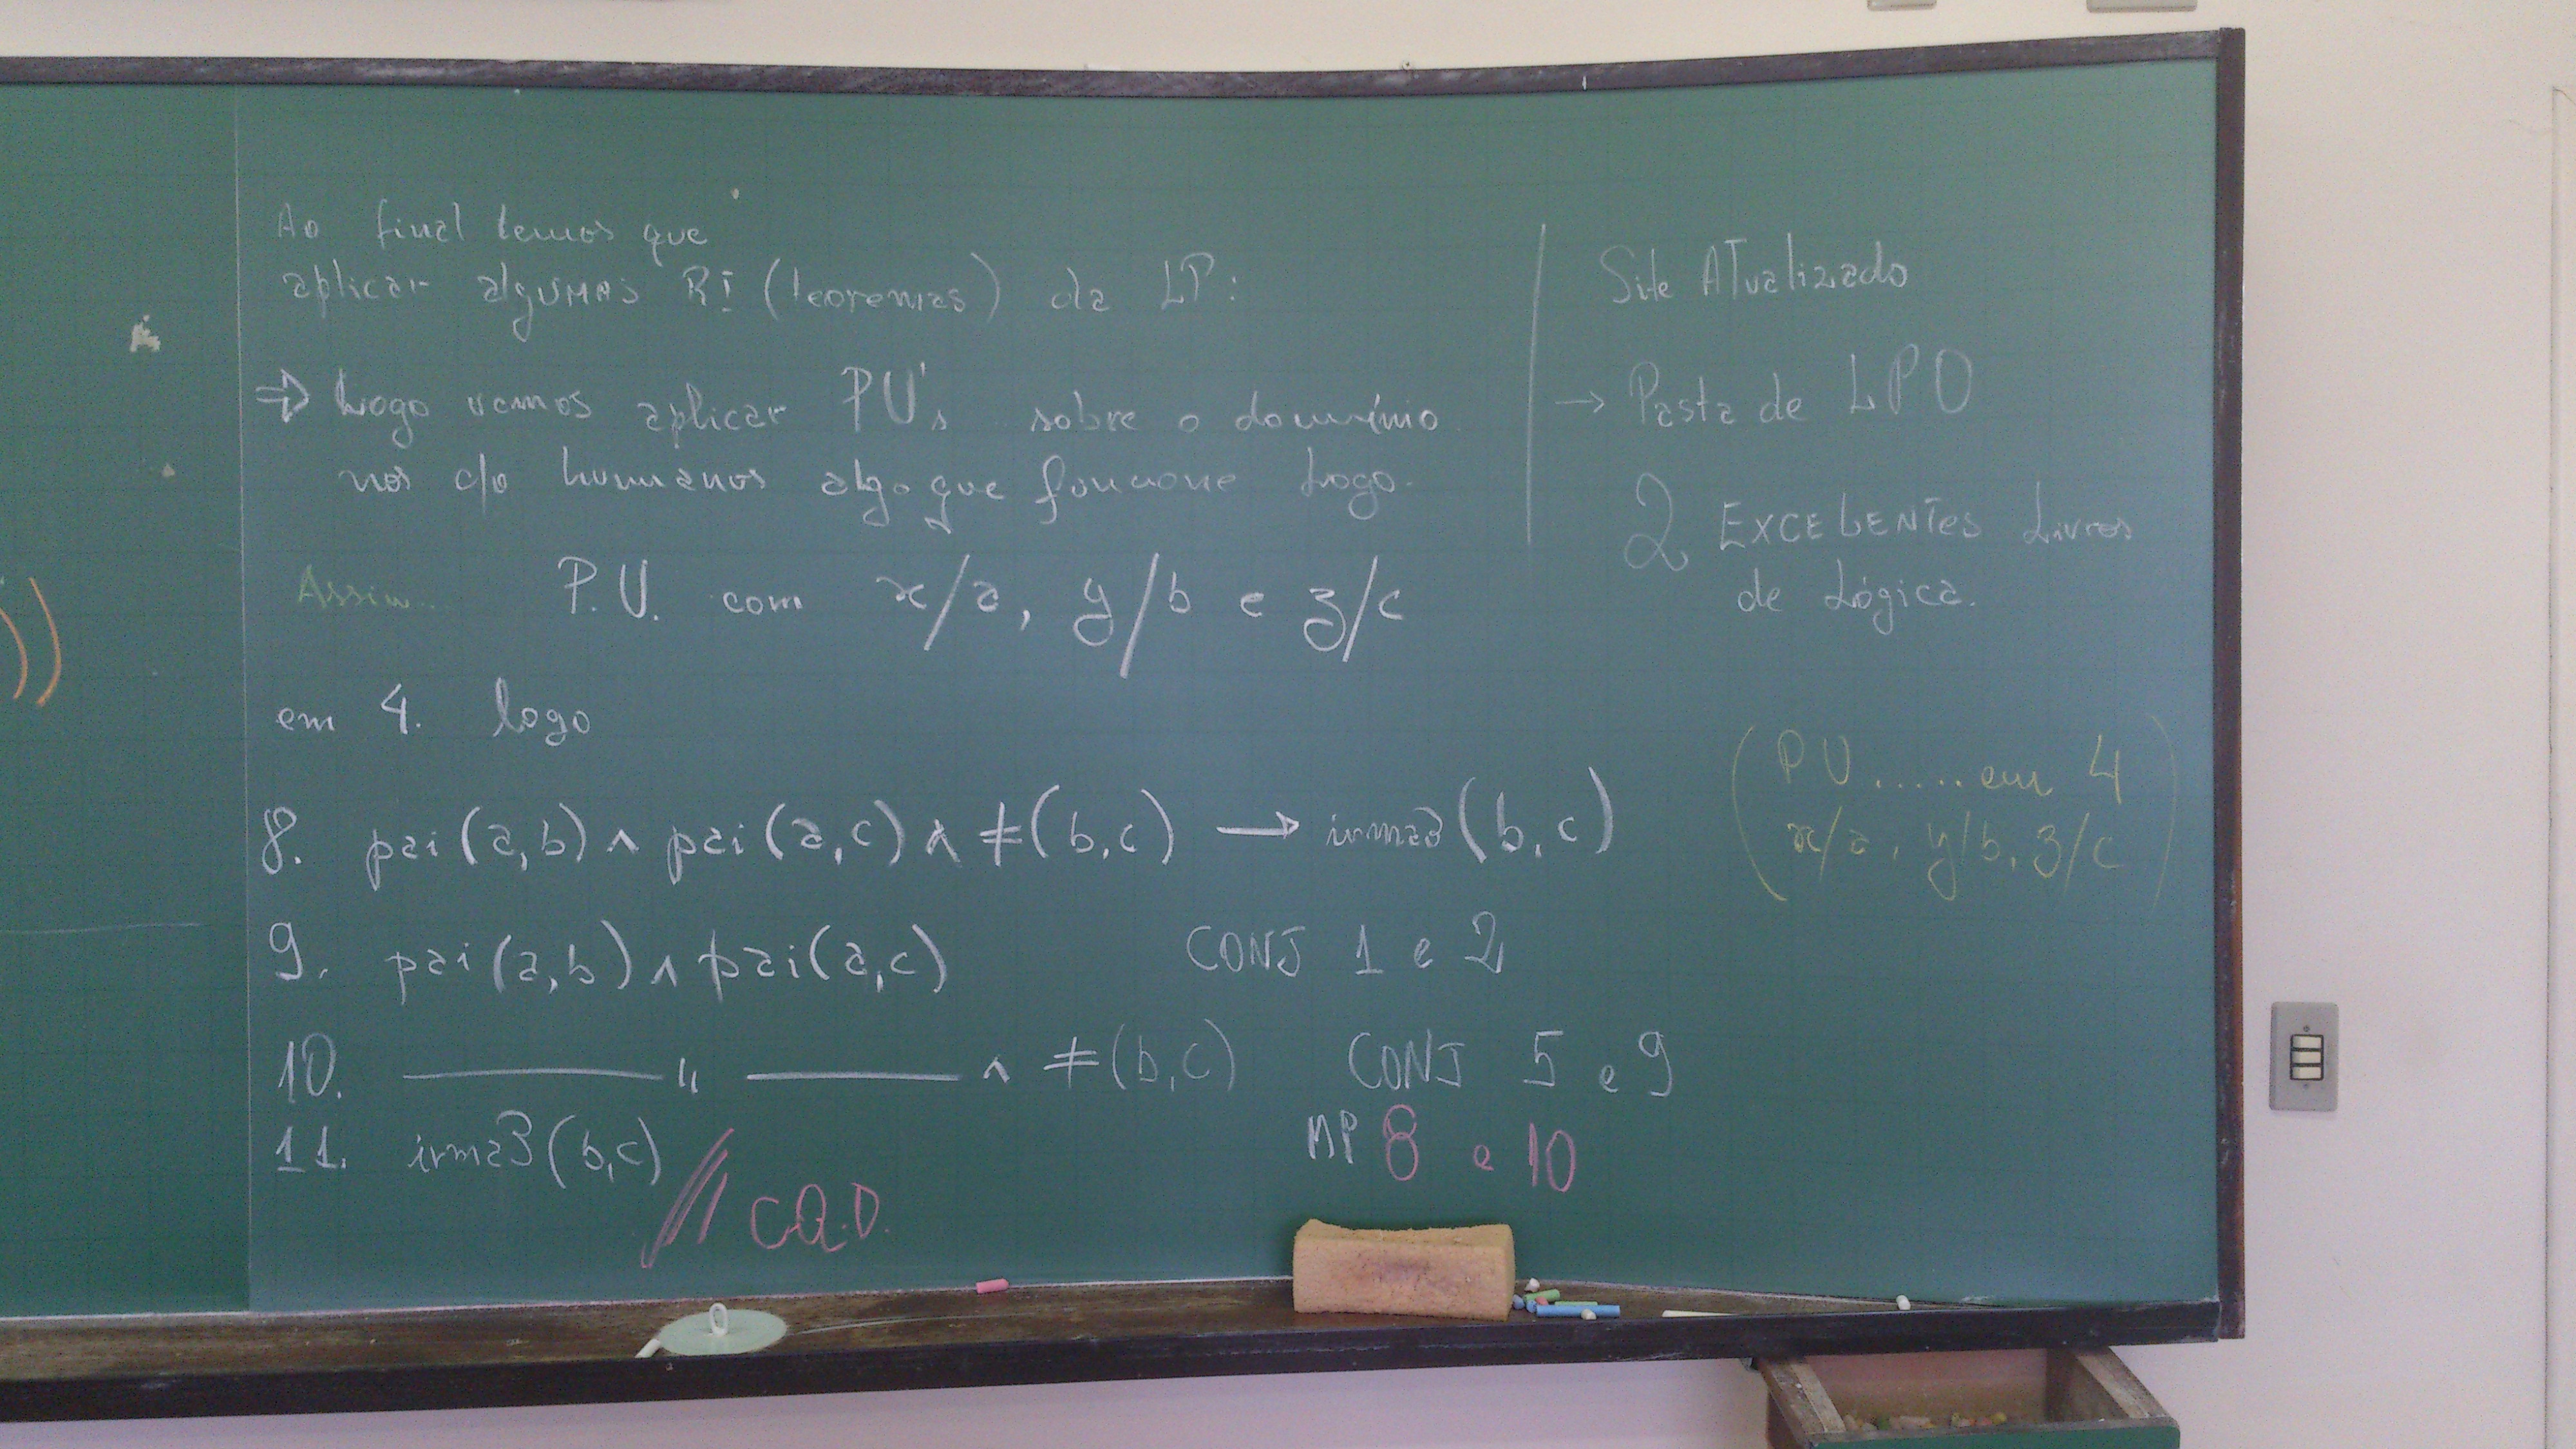 Ao final temos que
aplicar algumas RI (teoremas) da LP:
⇒ Logo vamos aplicar PU's sobre o domínio
nos c/o humanos algo que funcione Logo.
Assim... P.U. com x/a, y/b e z/c
em 4. logo
8. pai(a,b) ∧ pai(a,c) ∧ ≠(b,c) → irma3(b,c)
9. pai(a,b) ∧ pai(a,c) CONJ 1 e 2
10. ——— " ——— ∧ ≠(b,c) CONJ 5 e 9
11. irma3(b,c) MP 8 e 10
/// C.Q.D.
Site Atualizado
→ Pasta de LPO
2 EXCELENTES Livros
de Lógica.
(PU.....em 4
x/a, y/b, z/c)
))